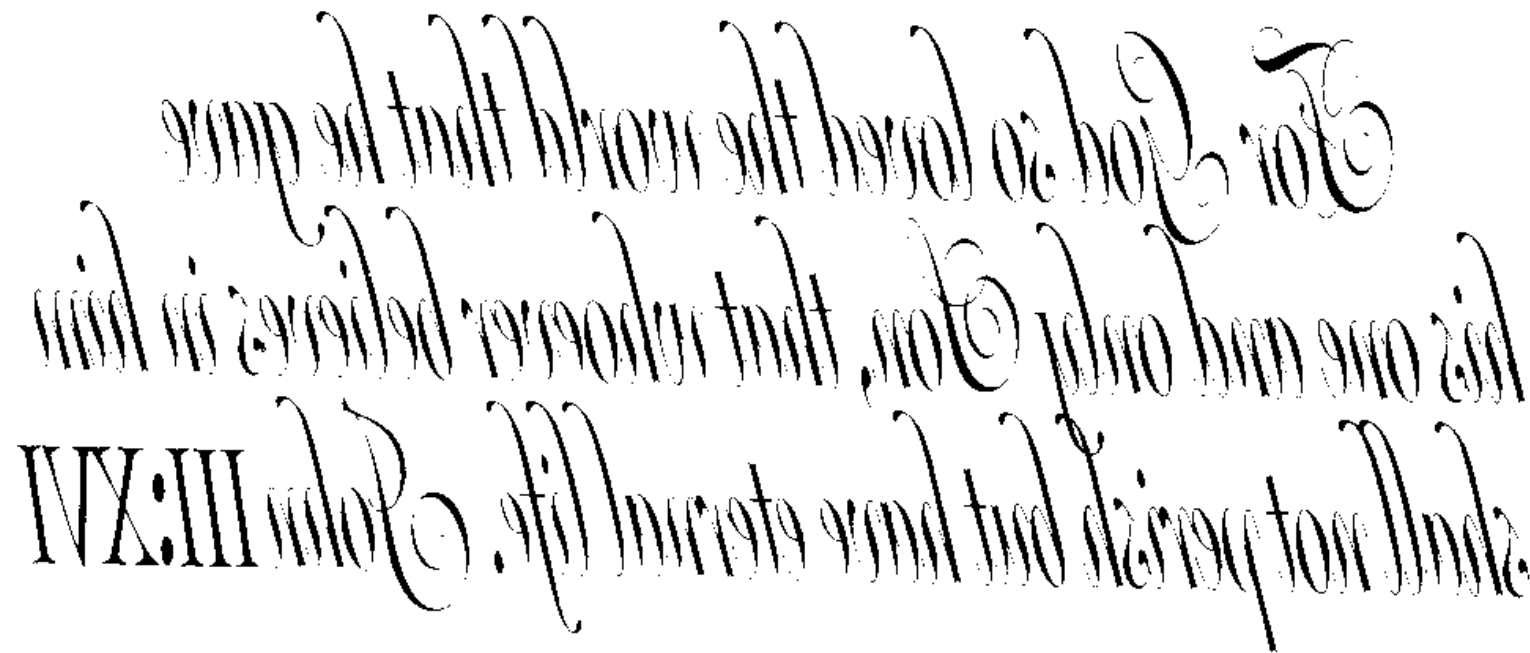 For God so loved the world that he gave
his one and only Son, that whoever believes in him
shall not perish but have eternal life. John III:XVI